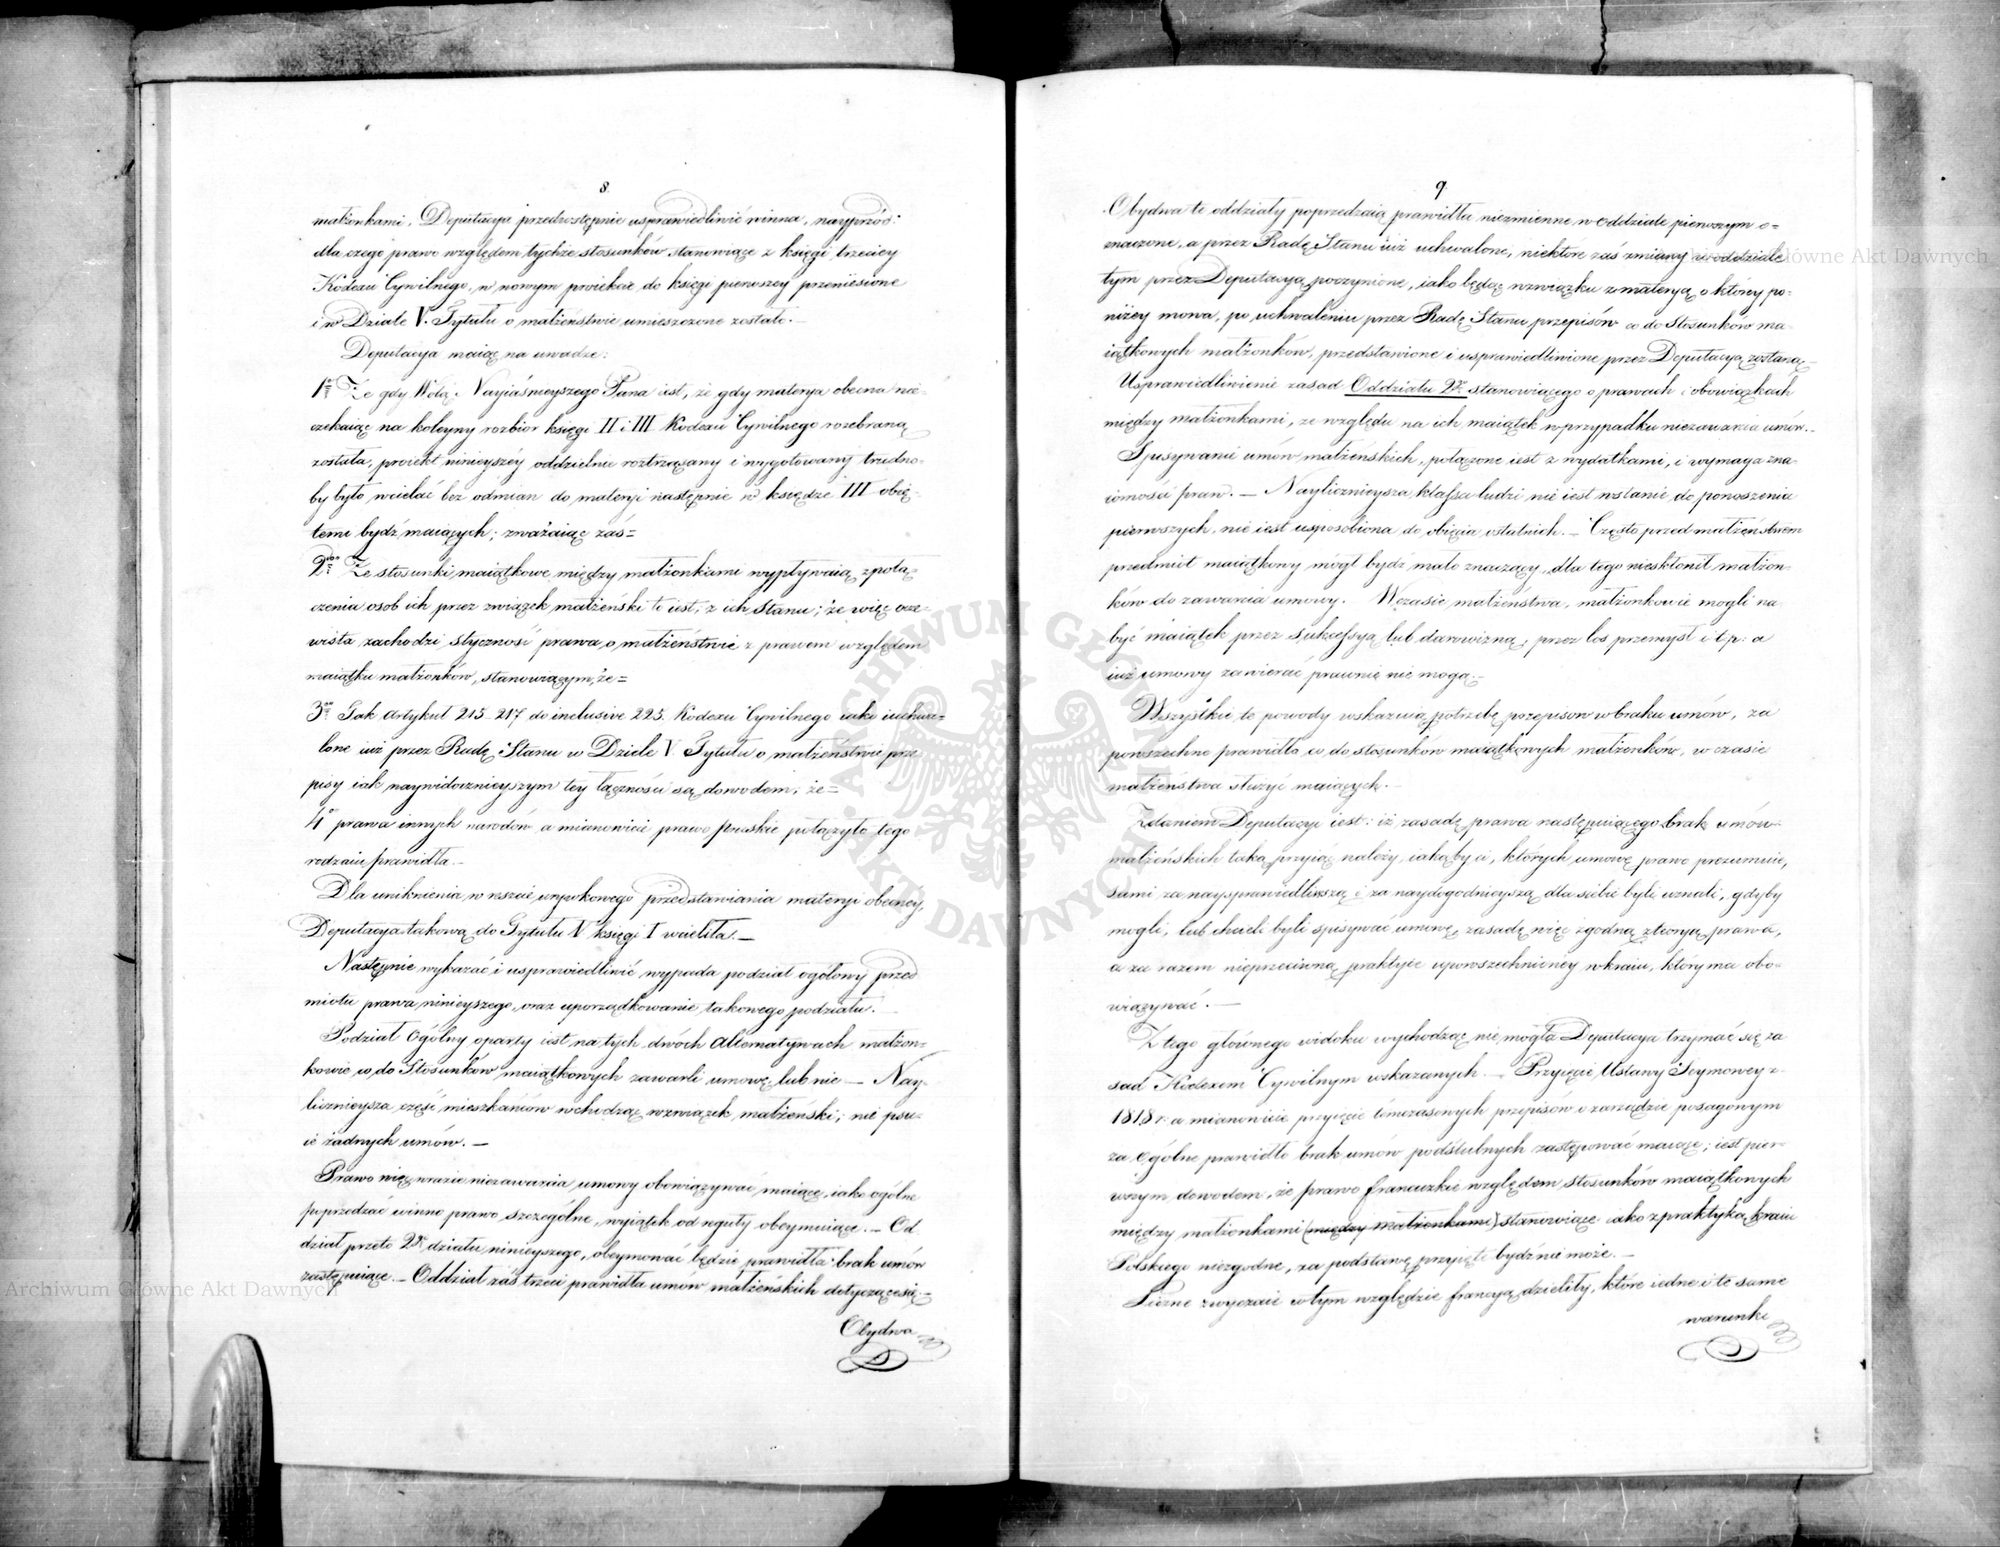 8.
małżonkami. Deputacya przedwstępnie usprawiedliwić winna, nayprzód:
dla czego prawo względem tychże stosunków stanowiące z księgi trzeciey
Kodexu Cywilnego, w nowym proiekcie do księgi pierwszey przeniesione
i w Dziale V. Tytułu o małżeństwie umieszczone zostało. —
Deputacya maiąc na uwadze:
1mo Że gdy Wolą Nayiaśnieyszego Pana iest, że gdy materya obecna nie-
czekaiąc na koleyny rozbiór księgi II i III Kodexu Cywilnego rozebraną
została, proiekt ninieyszy oddzielnie roztrząsany i wygotowany trudno-
by było wcielać bez odmian do materyi następnie w księdze III obię-
temi bydź maiących; zważaiąc zaś =
2do Że stosunki maiątkowe między małżonkami wypływaią z połą-
czenia osob ich przez związek małżeński to iest, z ich stanu; że więc ocze-
wista zachodzi styczność prawa o małżeństwie z prawem względem
maiątku małżonków, stanowiącym; że =
3o Jak Artykuł 215. 217 do inclusive 225. Kodexu Cywilnego iako iuchwa-
lone iuż przez Radę Stanu w Dziele V. Tytułu o małżeństwie prze
pisy iak naywidocznieyszym tey łączności są dowodem; że =
4o prawa innych narodów a mianowicie prawo pruskie połączyło tego
rodzaiu prawidła. —
Dla uniknienia w reszcie unpokowego przedstawiania materyi obecney,
Deputacya takową do Tytułu V księgi I wcieliła. —
Następnie wykazać i usprawiedliwić wypada podział ogólowy przed
miotu prawa ninieyszego, oraz uporządkowanie takowego podziału. —
Podział Ogólny oparty iest na tych dwóch Alternatywach małżon-
kowie co do Stosunków maiątkowych zawarli umowę lub nie — Nay-
licznieysza część mieszkańców wchodząc w związek małżeński; nie pisu-
ie żadnych umów. —
Prawo więc w razie niezawarcia umowy obowiązywać maiące, iako ogólne
poprzedzać winno prawo szczególne, wyiątek od reguły obeymuiące. — Od
dział przeto 2gi działu ninieyszego, obeymować będzie prawidła brak umów
zastępuiące. — Oddział zaś trzeci prawidła umów małżeńskich dotyczące się —
Obydwa
9.
Obydwa te oddziały poprzedzaią prawidła niezmienne w Oddziale pierwszym o-
znaczone, a przez Radę Stanu iuż uchwalone, niektóre zaś zmiany w oddziale
tym przez Deputacyą poczynione, iako będąc w związku z materyą o którey po-
niżey mowa, po uchwaleniu przez Radę Stanu przepisów co do Stosunków ma-
iątkowych małżonków, przedstawione i usprawiedliwione przez Deputacyą zostaną —
Usprawiedliwienie zasad Oddziału 2go stanowiącego o prawach i obowiązkach
między małżonkami, ze względu na ich maiątek w przypadku niezawarcia umów. —
Spisywanie umów małżeńskich, połączone iest z wydatkami, i wymaga zna-
iomości praw. — Nayliczniejsza klassa ludzi nie iest w stanie do ponoszenia
pierwszych, nie iest usposobiona do obięcia ostatnich. — Często przed małżeństwem
przedmiot maiątkowy mógł bydź mało znaczący, dla tego niesklonił małżon-
ków do zawarcia umowy. W czasie małżeństwa, małżonkowie mogli na-
być maiątek przez sukcessyą lub darowizną, przez los przemysł i t.p: a
iuż umowy zawierać prawnie nie mogą. —
Wszystkie te powody wskazuią potrzebę przepisów w braku umów, za
powszechne prawidła co do stosunków maiątkowych małżonków, w czasie
małżeństwa służyć maiących. —
Zdaniem Deputacyi iest: iż zasadę prawa następuiącego brak umów
małżeńskich taką przyiąć należy, iakąby ci, których umowę prawo prezumuie,
sami za naysprawiedliwszą i za naydogodnieyszą dla siebie byli uznali, gdyby
mogli, lub chcieli byli spisywać umowę, zasadę więc zgodną z teoryą prawa,
a za razem nieprzeciwną praktyce upowszechnioney w kraiu, który ma obo-
wiązywać. —
Z tego głównego widoku wychodząc nie mogła Deputacya trzymać się za
sad Kodexem Cywilnym wskazanych. — Przyięcie Ustawy Seymowey z
1818 r. a mianowicie przyięcie tymczasowych przepisów o zarządzie posagowym
za ogólne prawidło brak umów podślubnych zastępować maiące; iest pier-
wszym dowodem, że prawo francuzkie względem stosunków maiątkowych
między małżonkami (między małżonkami) stanowiące iako z praktyką kraiu
Polskiego niezgodne, za podstawę przyięte bydź nie może. —
Liczne zwyczaie w tym względzie francyą dzieliły, które iedne i te same
warunki
ARCHIWUM GŁÓWNE AKT DAWNYCH
Archiwum Główne Akt Dawnych
Główne Akt Dawnych